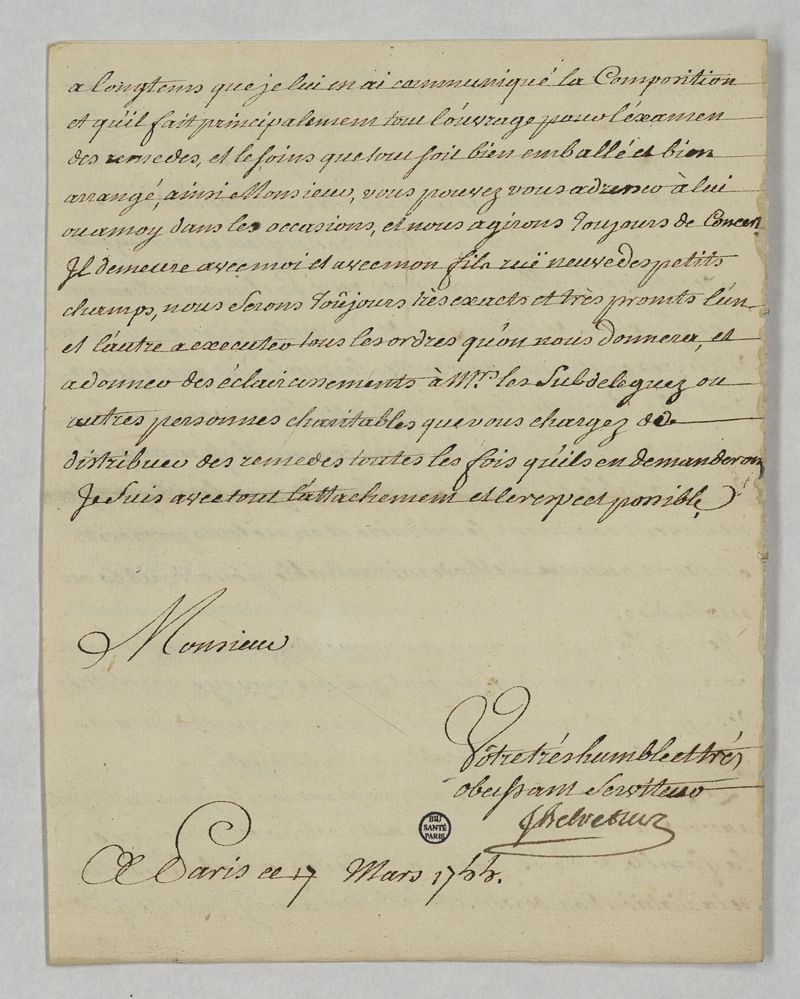 a longtems que je lui en ai communiqué la Composition
et qu'il fait principalement tout l'ouvrage pour l'éxamen
des remedes, et le soins que tout soit bien emballé et bien
arrangé, ainsi Monsieur, vous pouvez vous adresser à lui
ou a moy dans les occasions, et nous agirons Toujours de Concert
Il demeure avec moi et avec mon fils ruë neuve des petits
champs, nous Serons Toûjours très exacts et très promts l'un
et l'autre a executer tous les ordres qu'on nous donnera, et
a donner des éclaircissements à Mrs les Subdeleguez ou
autres personnes charitables que vous chargez de
distribuer des remedes toutes les fois qu'ils en demanderont
Je Suis avec tout l'attachement et le respect possible
Monsieur
Vôtre trés humble et trés
obeissant Serviteur
JHelvetius
BIU
SANTÉ
PARIS
A Paris ce 17 Mars 1755.